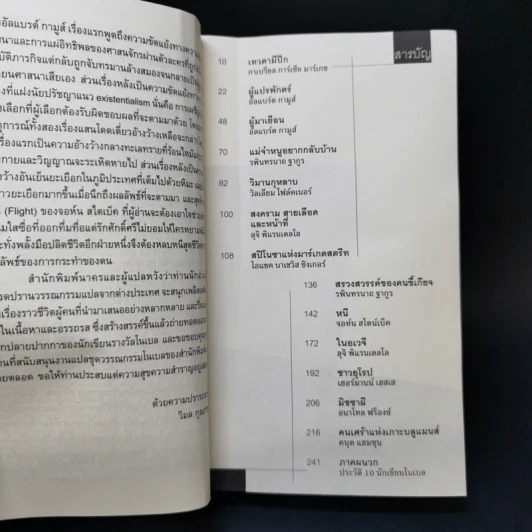 อัลแบรต์ กามูส์ เรื่องแรกพูดถึงความขัดแย้งทางความ
นาและการแผ่อิทธิพลของศาสนจักรผ่านตัวละครที่ถูก
บัติภารกิจแต่กลับถูกจับทรมานล้างสมองจนกลายเป็น
ยนศาสนาเสียเอง ส่วนเรื่องหลังเป็นความขัดแย้งทาง
ที่แฝงนัยปรัชญาแนว existentialism นั่นคือ การเผชิญ
เลือกที่ผู้เลือกต้องรับผิดชอบผลที่จะตามมาด้วย
ุการณ์ทั้งสองเรื่องแสนโดดเดี่ยวอ้างว้างเหลือจะกล่าว
เรื่องแรกเป็นความอ้างว้างกลางทะเลทรายที่ร้อนไหม้
กายและวิญญาณจะระเหิดหายไป ส่วนเรื่องหลังเป็นความ
ว้างอันเย็นยะเยือกในภูมิประเทศที่เต็มไปด้วยหิมะ
าวยะเยือกมากขึ้นเมื่อนึกถึงผลลัพธ์ที่จะตามมา
(Flight) ของจอห์น สไตเบ็ค ที่ผู้อ่านจะต้องเอาใจช่วย
มใสซื่อที่ออกที่มแต่รักศักดิ์ศรีไม่ยอมให้ใครหยาม
ะทั่งพลั้งมือปลิดชีวิตอีกฝ่ายหนึ่งจึงต้องหลบหนีสุดชีวิต
ลัพธ์ของการกระทำของตน
สำนักพิมพ์นาครและผู้แปลหวังว่าท่านนักอ่าน
งดปรานวรรณกรรมแปลจากต่างประเทศ จะสนุกเพลิดเพลิน
เรื่องราวชีวิตผู้คนที่นำมาเสนออย่างหลากหลาย
ในเนื้อหาและอรรถรส ซึ่งสร้างสรรค์ขึ้นแล้วถ่ายทอด
กปลายปากกาของนักเขียนรางวัลโนเบล และขอขอบคุณ
านที่สนับสนุนงานแปลชุดวรรณกรรมโนเบลของสำนักพิมพ์
ยตลอด ขอให้ท่านประสบแต่ความสุขความสำราญ
ด้วยความปรารถนา
วิมล กุณ
สารบัญ
10 เทวดามีปีก
กาเบรียล การ์เซีย มาร์เกซ
22 ผู้แปรพักตร์
อัลแบรต์ กามูส์
48 ผู้มาเยือน
อัลแบรต์ กามูส์
70 แม่จ๋าหนูอยากกลับบ้าน
รพินทรนาถ ฐากูร
82 วิมานกุหลาบ
วิลเลียม โฟล์คเนอร์
100 สงคราม สายเลือด
และหน้าที่
ลุจิ พิแรนเดลโล
108 สปิโนซาแห่งมาร์เกตสตรีท
ไอแซค บาเชวิส ซิงเกอร์
136 สรวงสวรรค์ของคนขี้เกียจ
รพินทรนาถ ฐากูร
142 หนี
จอห์น สไตน์เบ็ค
172 ในยเวจี
ลุจิ พิแรนเดลโล
192 ชาวยุโรป
เฮอร์มานน์ เฮสเส
206 มิซซาผี
อนาโทล ฟร็องซ์
216 คนเศร้าแห่งเกาะบลูแมนส์
คนุต แฮมซุน
241 ภาคผนวก
ประวัติ 10 นักเขียนโนเบล